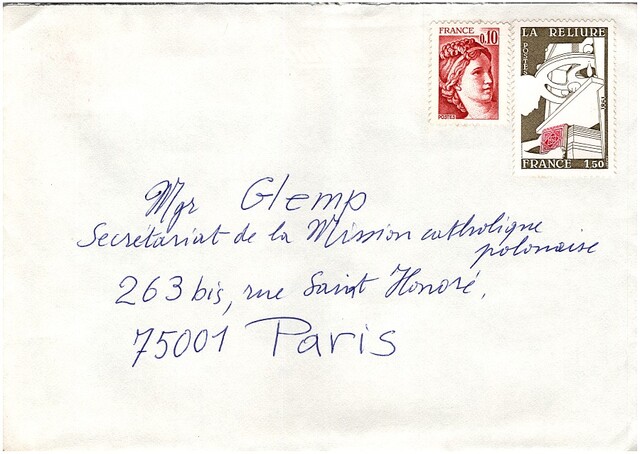 FRANCE
0,10
POSTES
LA RELIURE
POSTES
1981
FRANCE 1,50
Mgr Glemp
Secrétariat de la Mission catholique
polonaise
263 bis, rue Saint Honoré,
75001 Paris